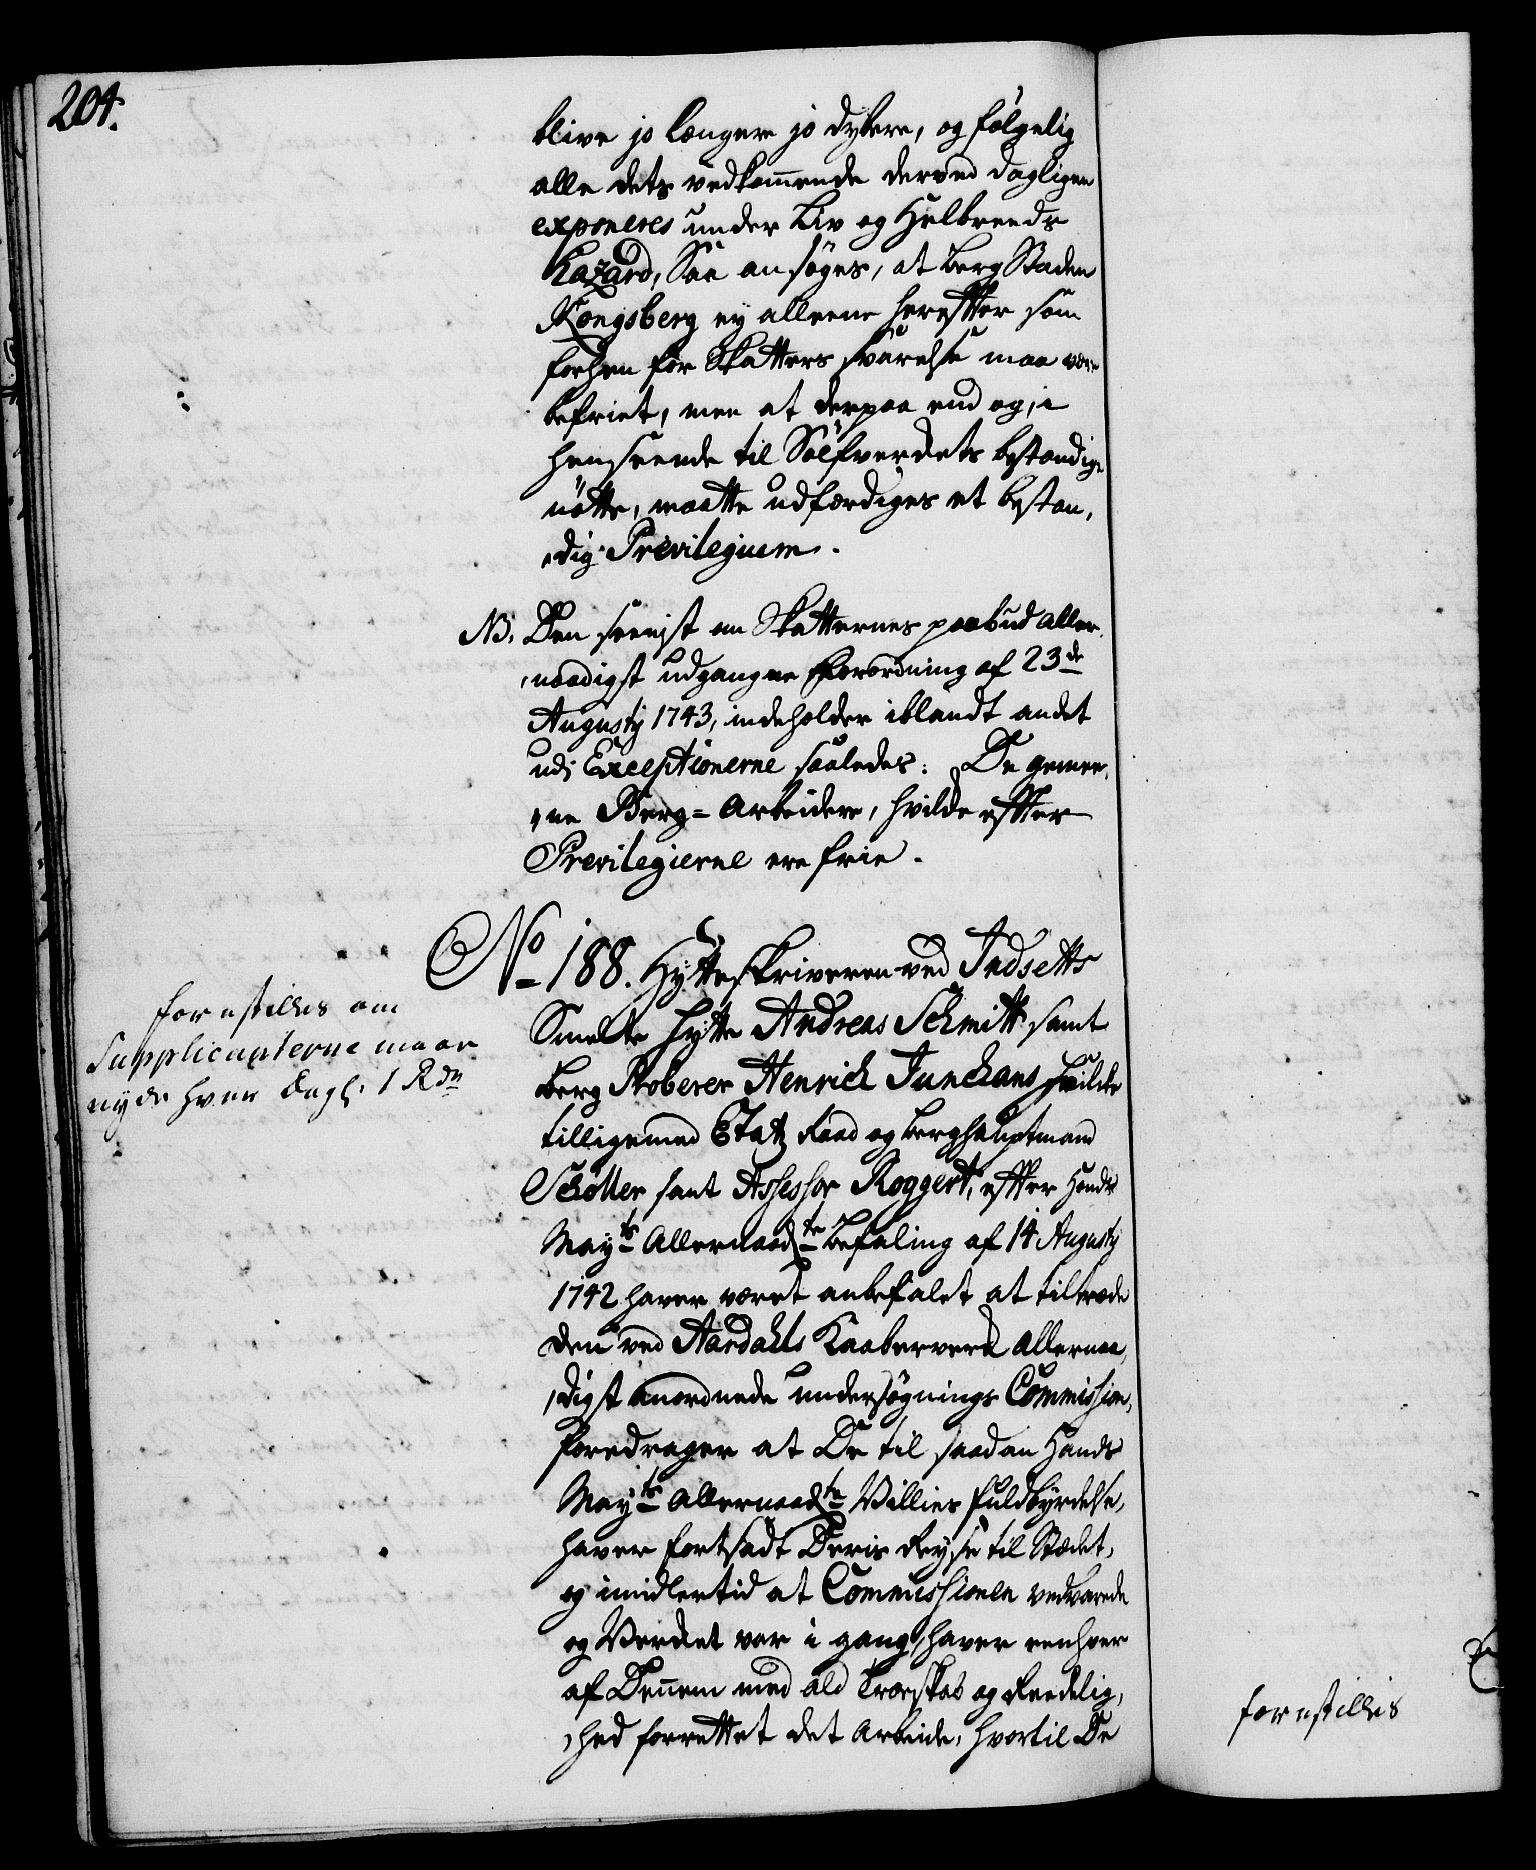 204.
blive jo længere jo dybere, og følgelig
alle dets vedkom̄ende derved dagligen
exponeres under Liv og Helbreeds
hazard, Saa ansøges, at Berg Staden
Kongsberg ey alleene herefter som
forhen for Skatters svarelse maa være
befriet, men at derpaa end og, i
henseende til Sølfverkets bestandige
nøtte, maatte udfærdiges et bestan,
,dig Previlegium.
NB. Den seenist om Skatternes paabud aller,
,naadigst udgangne Forordning af 23de
Augusty 1743, indeholder iblandt andet
udj Exceptionerne saaledes: De gemee,
,ne Berg-Arbeidere, hvilke efter
Previlegierne ere frie.
No 188. Hytteskriveren ved Indsetts
Smelte Hytte Andreas Schmitt samt
Berg Proberer Henrich Junchans hvilke
tilligemed Etatz Raad og Berghauptmand
Schøller samt Assessor Roggert, efter Hands
Mayts Allernaadste Befaling af 14 Augusty
1742 haver været anbefalet at tiltræde
den ved Aardahls Kaaberverk allernaa,
,digst anordnede undersøgnings Commission,
foredrager at De til saadan Hands
Mayts Allernaadste Villies fuldbyrdelse,
haver fortsadt Deris Reyse til Stædet,
og imidlertid at Commissionen vedvarede
og Verket var i gang, haver eenhver
af Dennem med ald Troeskab og Reedelig,
,hed forrettet det Arbeide, hvortil De
forestilles om
Supplicanterne maae
nyde hver dagl. 1 Rdr
forestilles